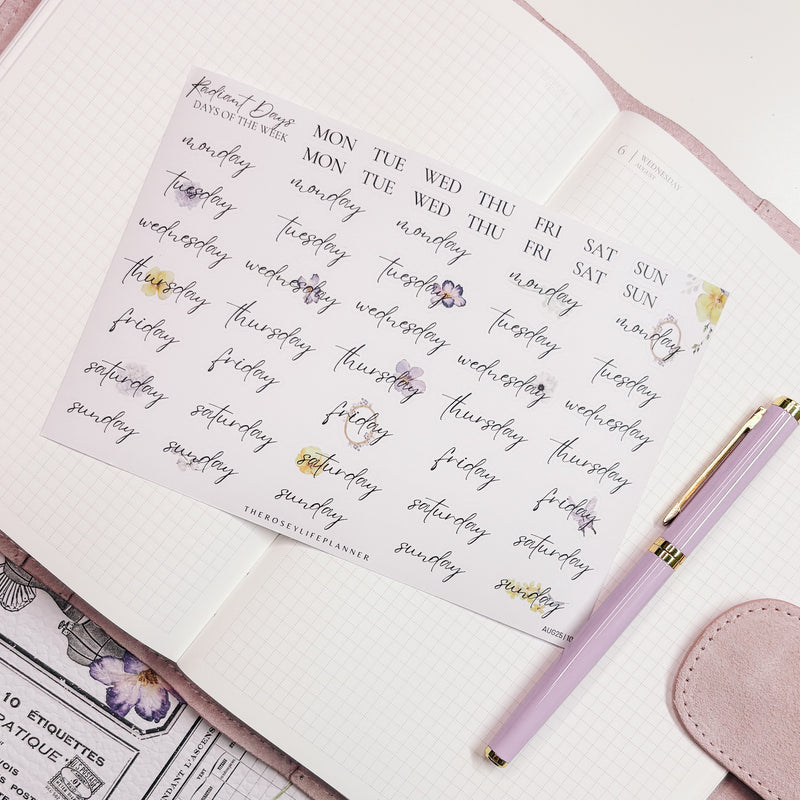 Radiant Days
DAYS OF THE WEEK
MON TUE WED THU FRI SAT SUN
MON TUE WED THU FRI SAT SUN
monday monday monday monday monday
tuesday tuesday tuesday tuesday tuesday
wednesday wednesday wednesday wednesday wednesday
thursday thursday thursday thursday thursday
friday friday friday friday friday
saturday saturday saturday saturday saturday
sunday sunday sunday sunday sunday
THEROSEYLIFEPLANNER
AUG25|10
6 | WEDNESDAY
AUGUST
10 ÉTIQUETTES
PRATIQUE